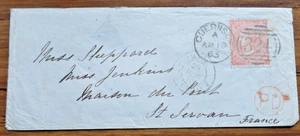 Miss Sheppard
Miss Jenkins
Maison du Port
St. Servan
France
A
AP 13
63
PD